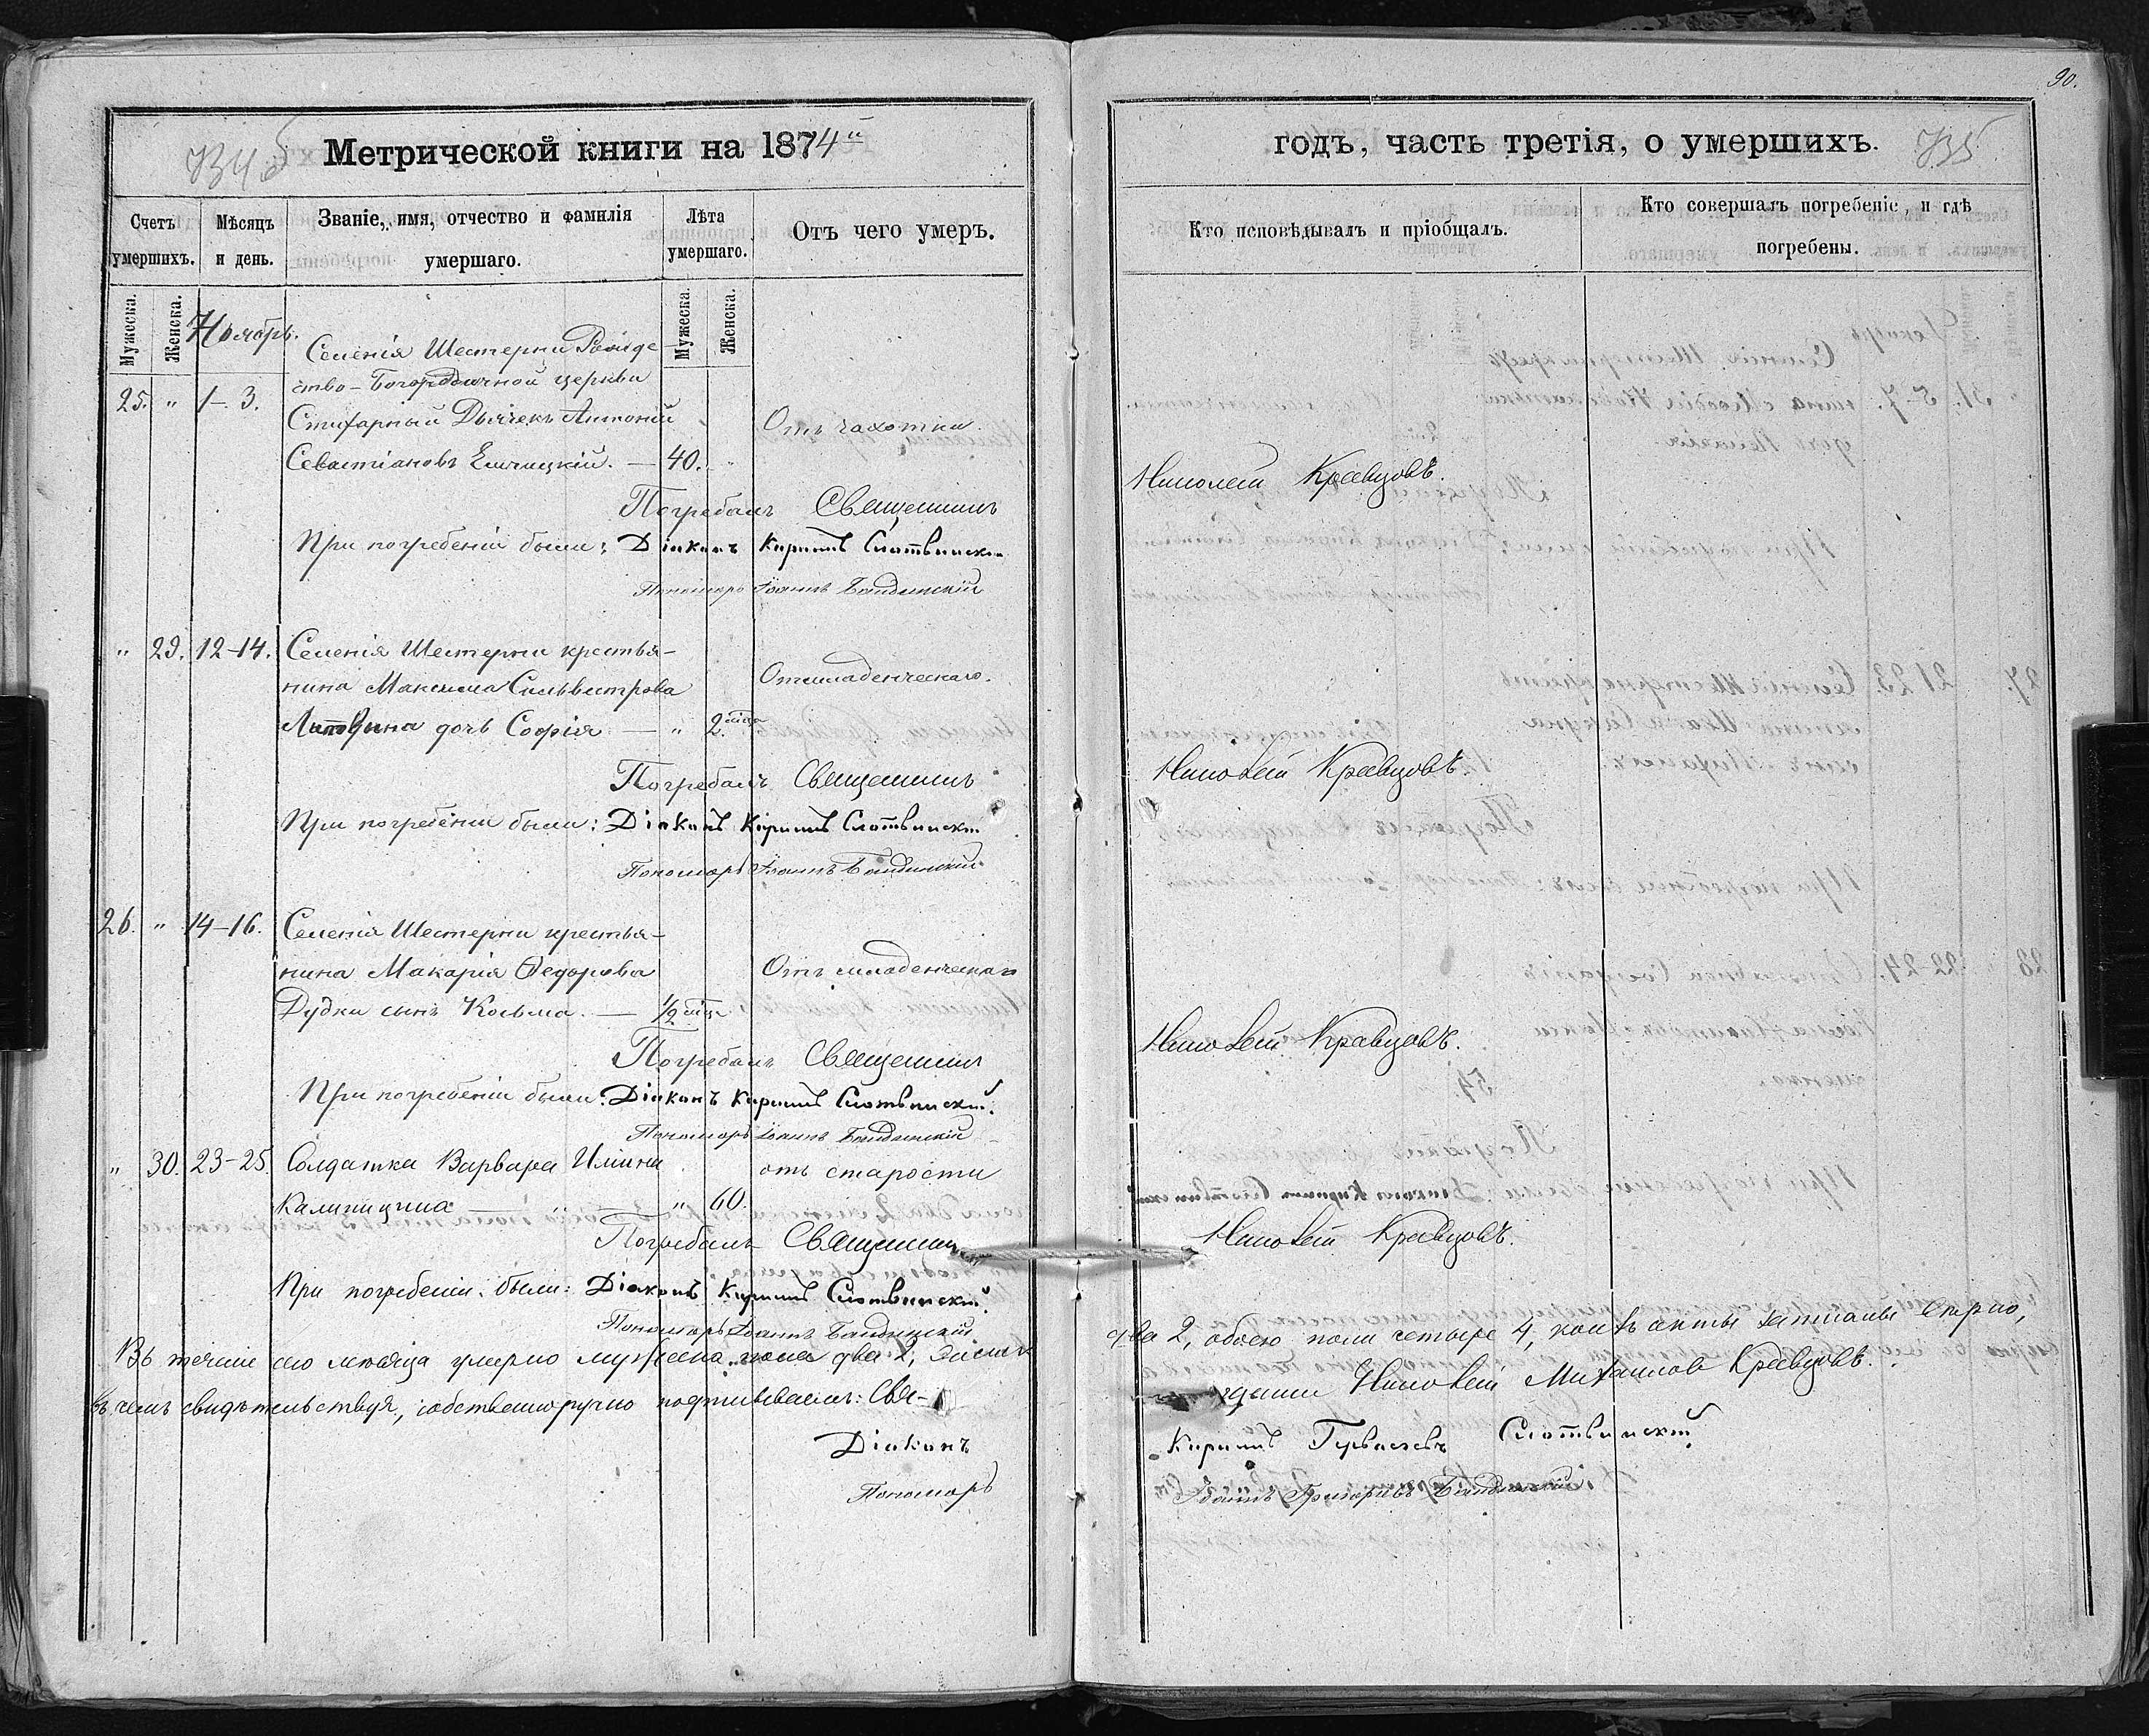 90.
Метрической книги на 1874й
годъ, часть третія, о умершихъ.
735
Счетъ умершихъ.
Мѣсяцъ и день.
Званіе, имя, отчество и фамилія умершаго.
Лѣта умершаго.
Отъ чего умеръ.
Кто исповѣдывалъ и пріобщалъ.
Кто совершалъ погребеніе, и гдѣ погребены.
Мужеска.
Женска.
Мужеска.
Женска.
Ноябрь.
Селенія Шестерни Рожде-
25. " 1-3. ство-Богородичной церкви
Стихарный Дьячекъ Антоній Отъ чахотки.
Севастіановъ — 40. "
Погребалъ Священникъ Николай Кравцовъ.
При погребеніи были: Діаконъ Кириллъ Слотвинскій
Пономарь Іоаннъ Бандинскій
" 29. 12-14. Селенія Шестерни крестья-
нина Максима Сильвестрова Отъ младенческаго.
Литвина дочь Софія — " 2. мѣся
Погребалъ Священникъ Николай Кравцовъ.
При погребеніи были: Діаконъ Кириллъ Слотвинскій
Пономарь Іоаннъ Бандинскій
26. " 14-16. Селенія Шестерни крестья-
нина Макарія Ѳедорова Отъ младенческаго
Дудки сынъ Косьма. — 1/2 мѣся
Погребалъ Священникъ Николай Кравцовъ.
При погребеніи были: Діаконъ Кириллъ Слотвинскій.
Пономарь Іоаннъ Бандинскій
" 30. 23-25. Солдатка Варвара Иліина отъ старости
Калиницина — " — " 60.
Погребалъ Священникъ Николай Кравцовъ.
При погребеніи были: Діаконъ Кириллъ Слотвинскій.
Пономарь Іоаннъ Бандинскій
Въ теченіе сего мѣсяца умерло мужеска пола два 2, женска два 2, обоего пола четыре 4, коихъ акты записаны вѣрно,
въ чемъ свидѣтельствуя, собственноручно подписываемъ: Свя- Николай Михаиловъ Кравцовъ.
Діаконъ Кириллъ Слотвинскій
Пономарь Іоаннъ Григоріевъ Бандинскій